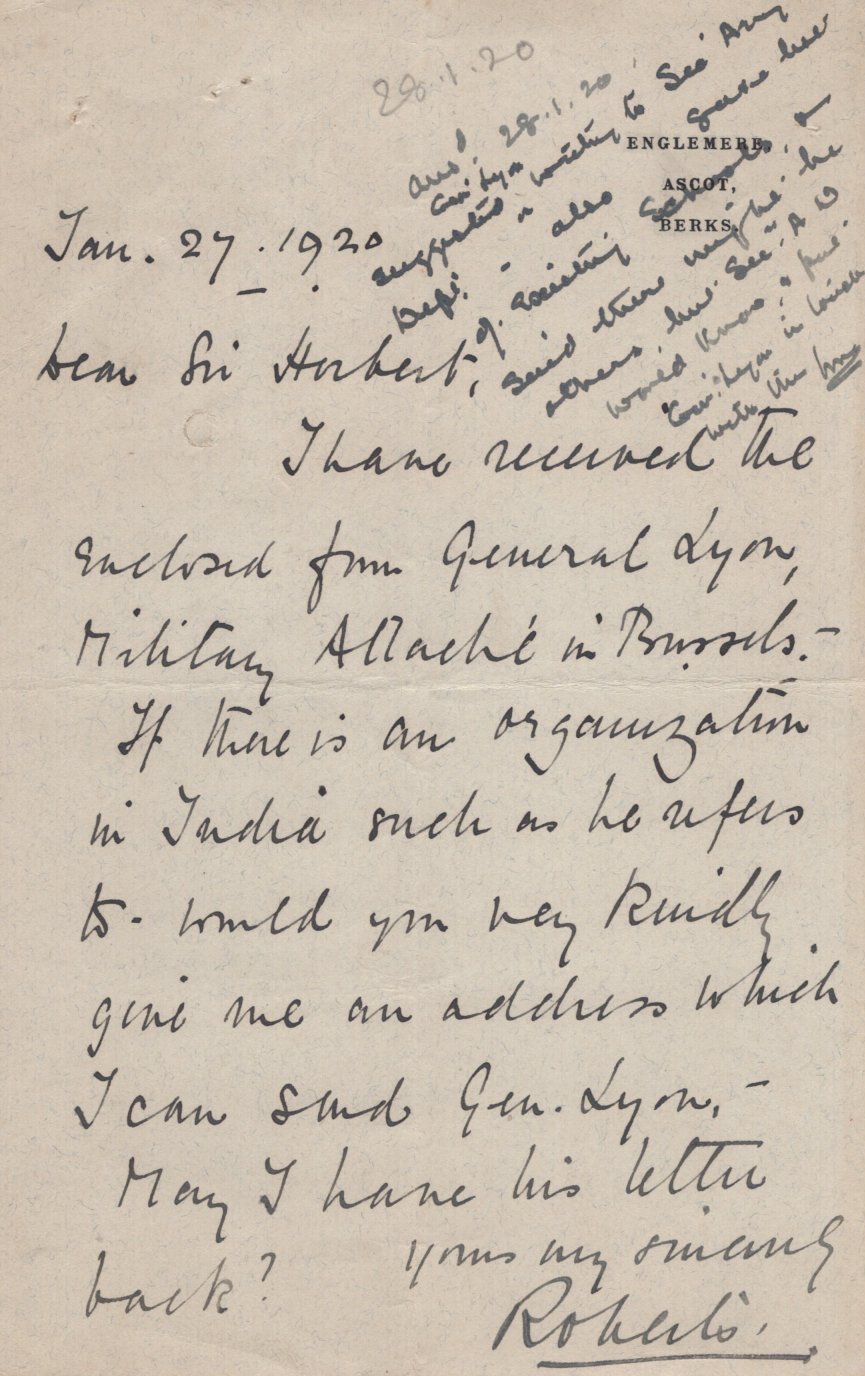 28.1.20
ansd. 28.1.20.
Gen. Lyon
suggested writing to Sec Army
Dept. - also gave her
ENGLEMERE,
ASCOT,
BERKS.
of existing Schools, &
said there might be
others, but Sec. A D
would know.
Gen. Lyon in
with the
Jan. 27. 1920
Dear Sir Herbert,
I have received the
enclosed from General Lyon,
Military Attaché in Brussels.-
If there is an organization
in India such as he refers
to - would you very kindly
give me an address which
I can send Gen. Lyon.-
May I have his letter
back? Yours very sincerely
Roberts.